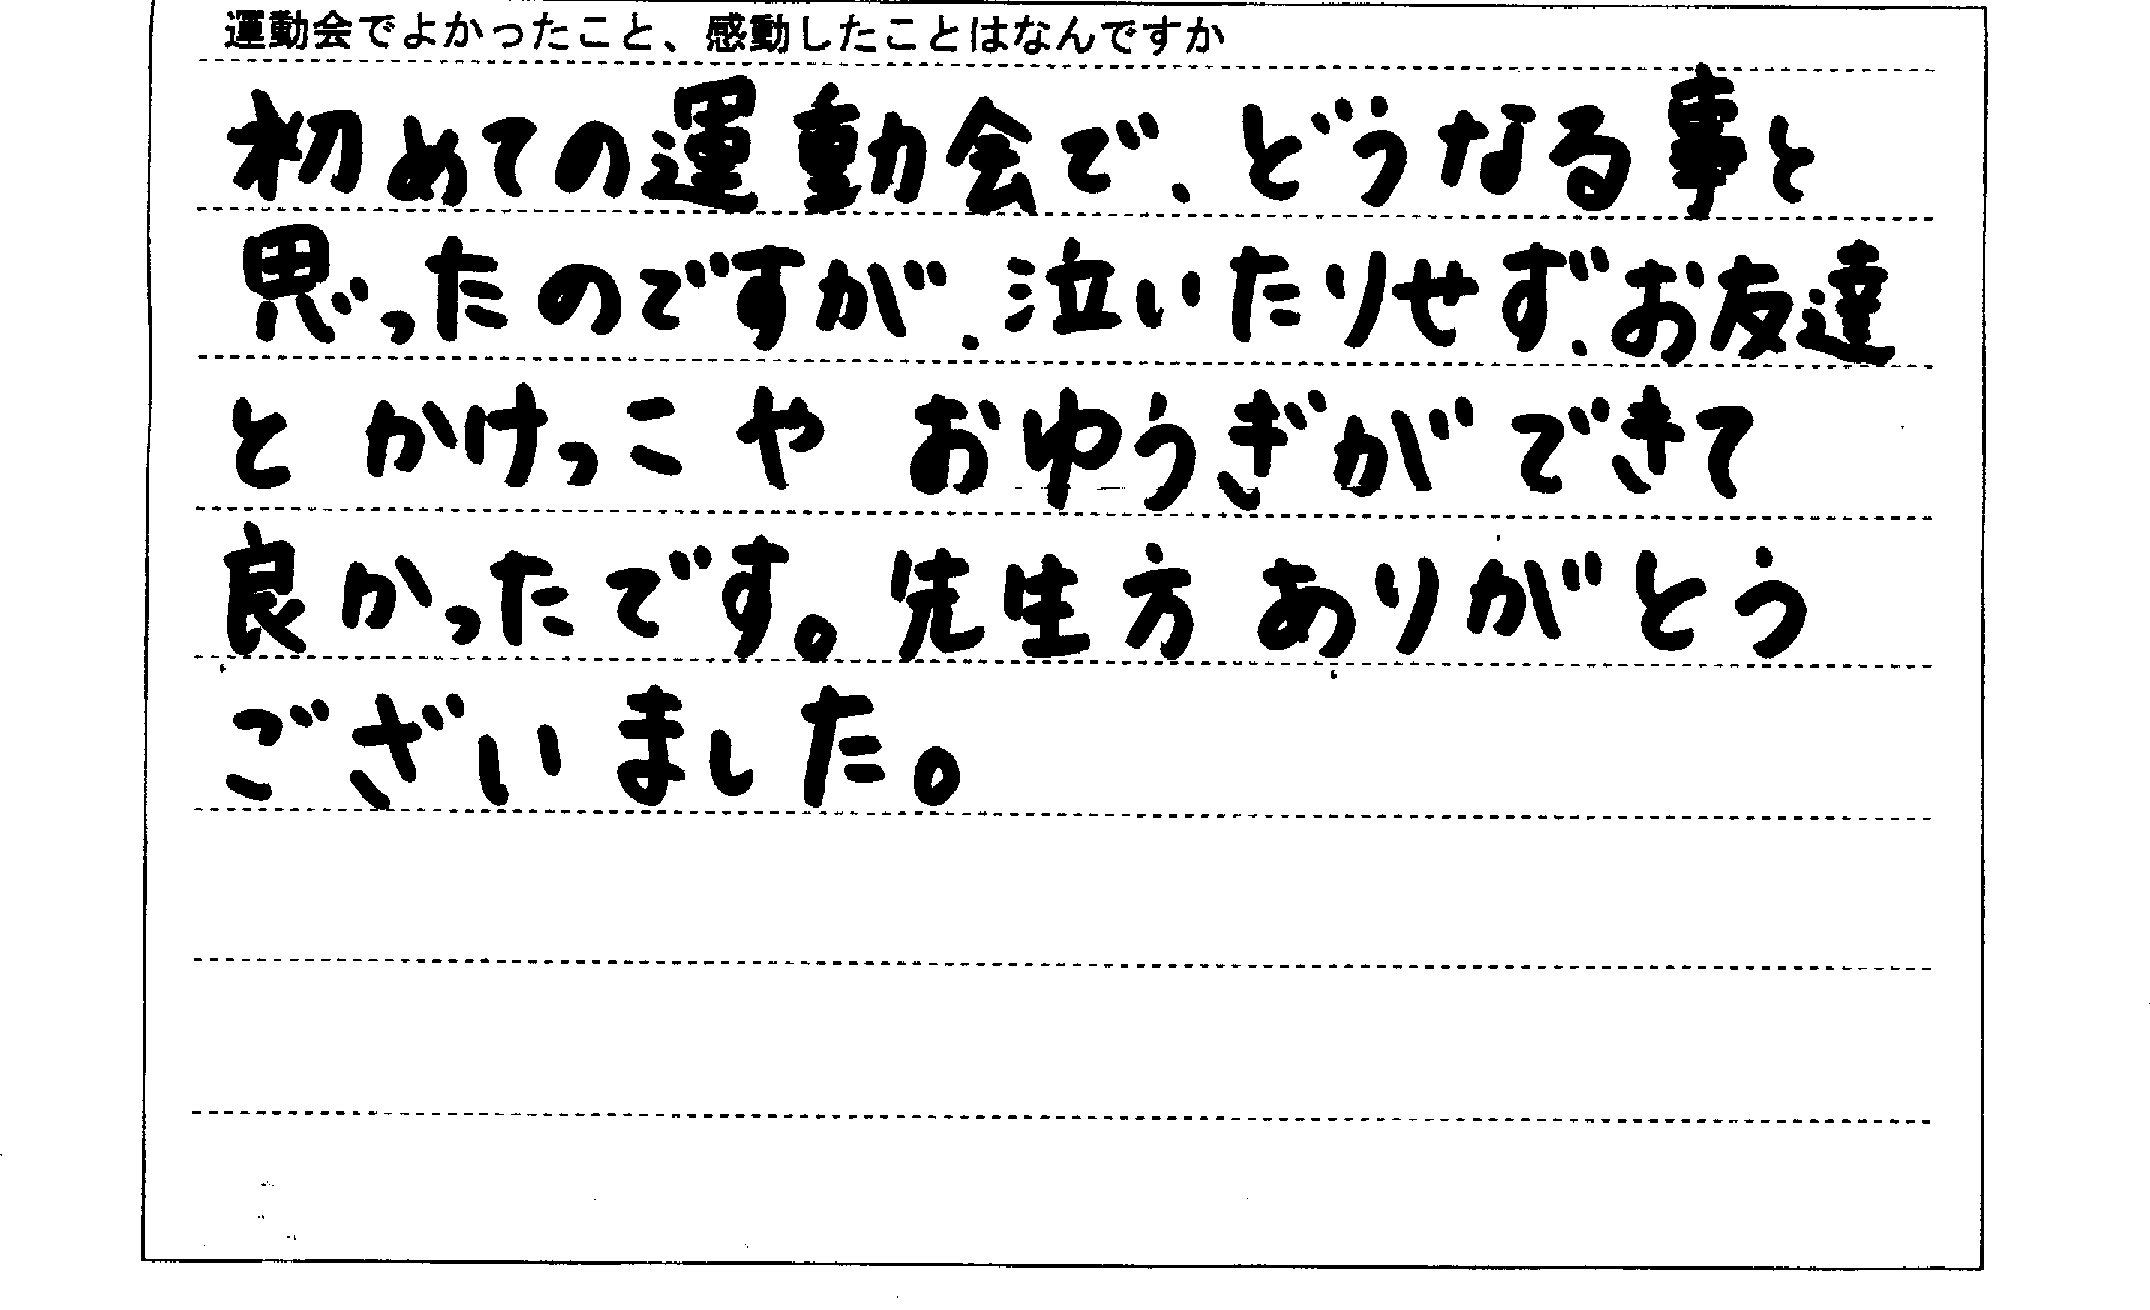 運動会でよかったこと、感動したことはなんですか
初めての運動会で、どうなる事と
思ったのですが、泣いたりせず、お友達
と かけっこ や おゆうぎが できて
良かったです。先生方 ありがとう
ございました。